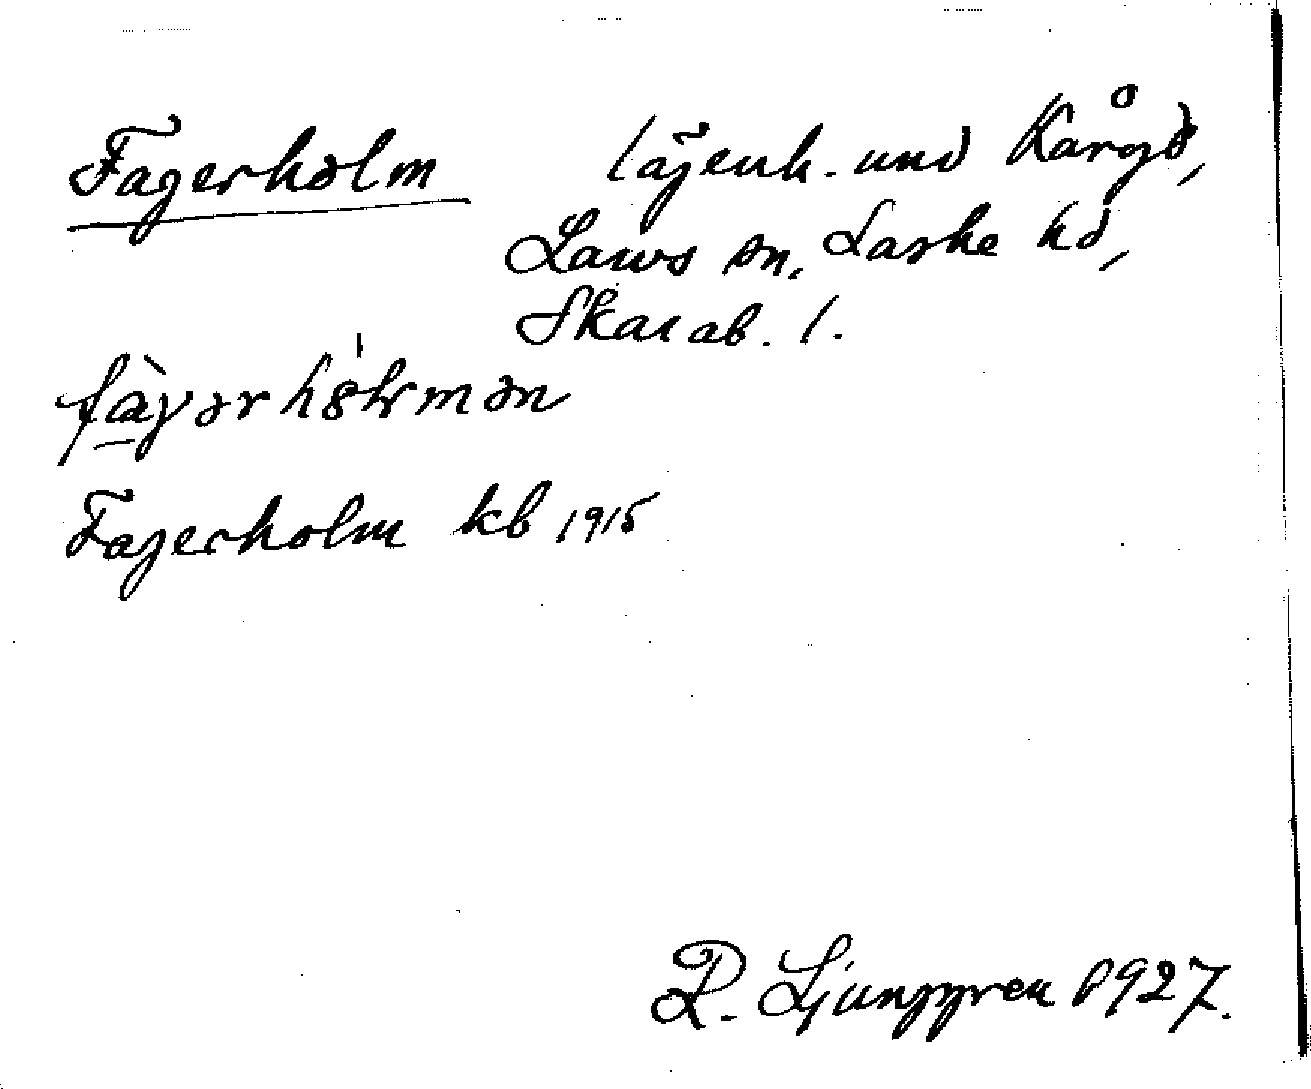 Fagerholm lägenh. und Kårgd,
Laws sn, Laske hd,
Skarab. l.
Fagerholm kb 1915
R. Ljunggren 1927.